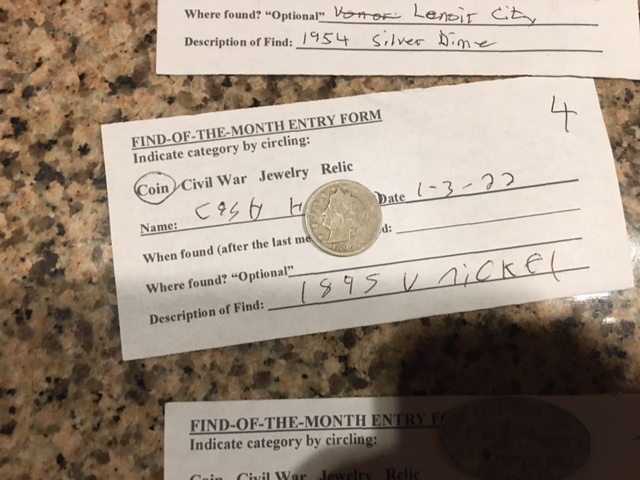 Where found? "Optional" Lenoir City
Description of Find: 1954 Silver Dime
FIND-OF-THE-MONTH ENTRY FORM
4
Indicate category by circling:
Coin Civil War Jewelry Relic
Name: Cash H Date 1-3-22
When found (after the last me d:
Where found? "Optional"
Description of Find: 1895 V nickel
FIND-OF-THE-MONTH ENTRY
Indicate category by circling:
Coin Civil War Jewelry Relic